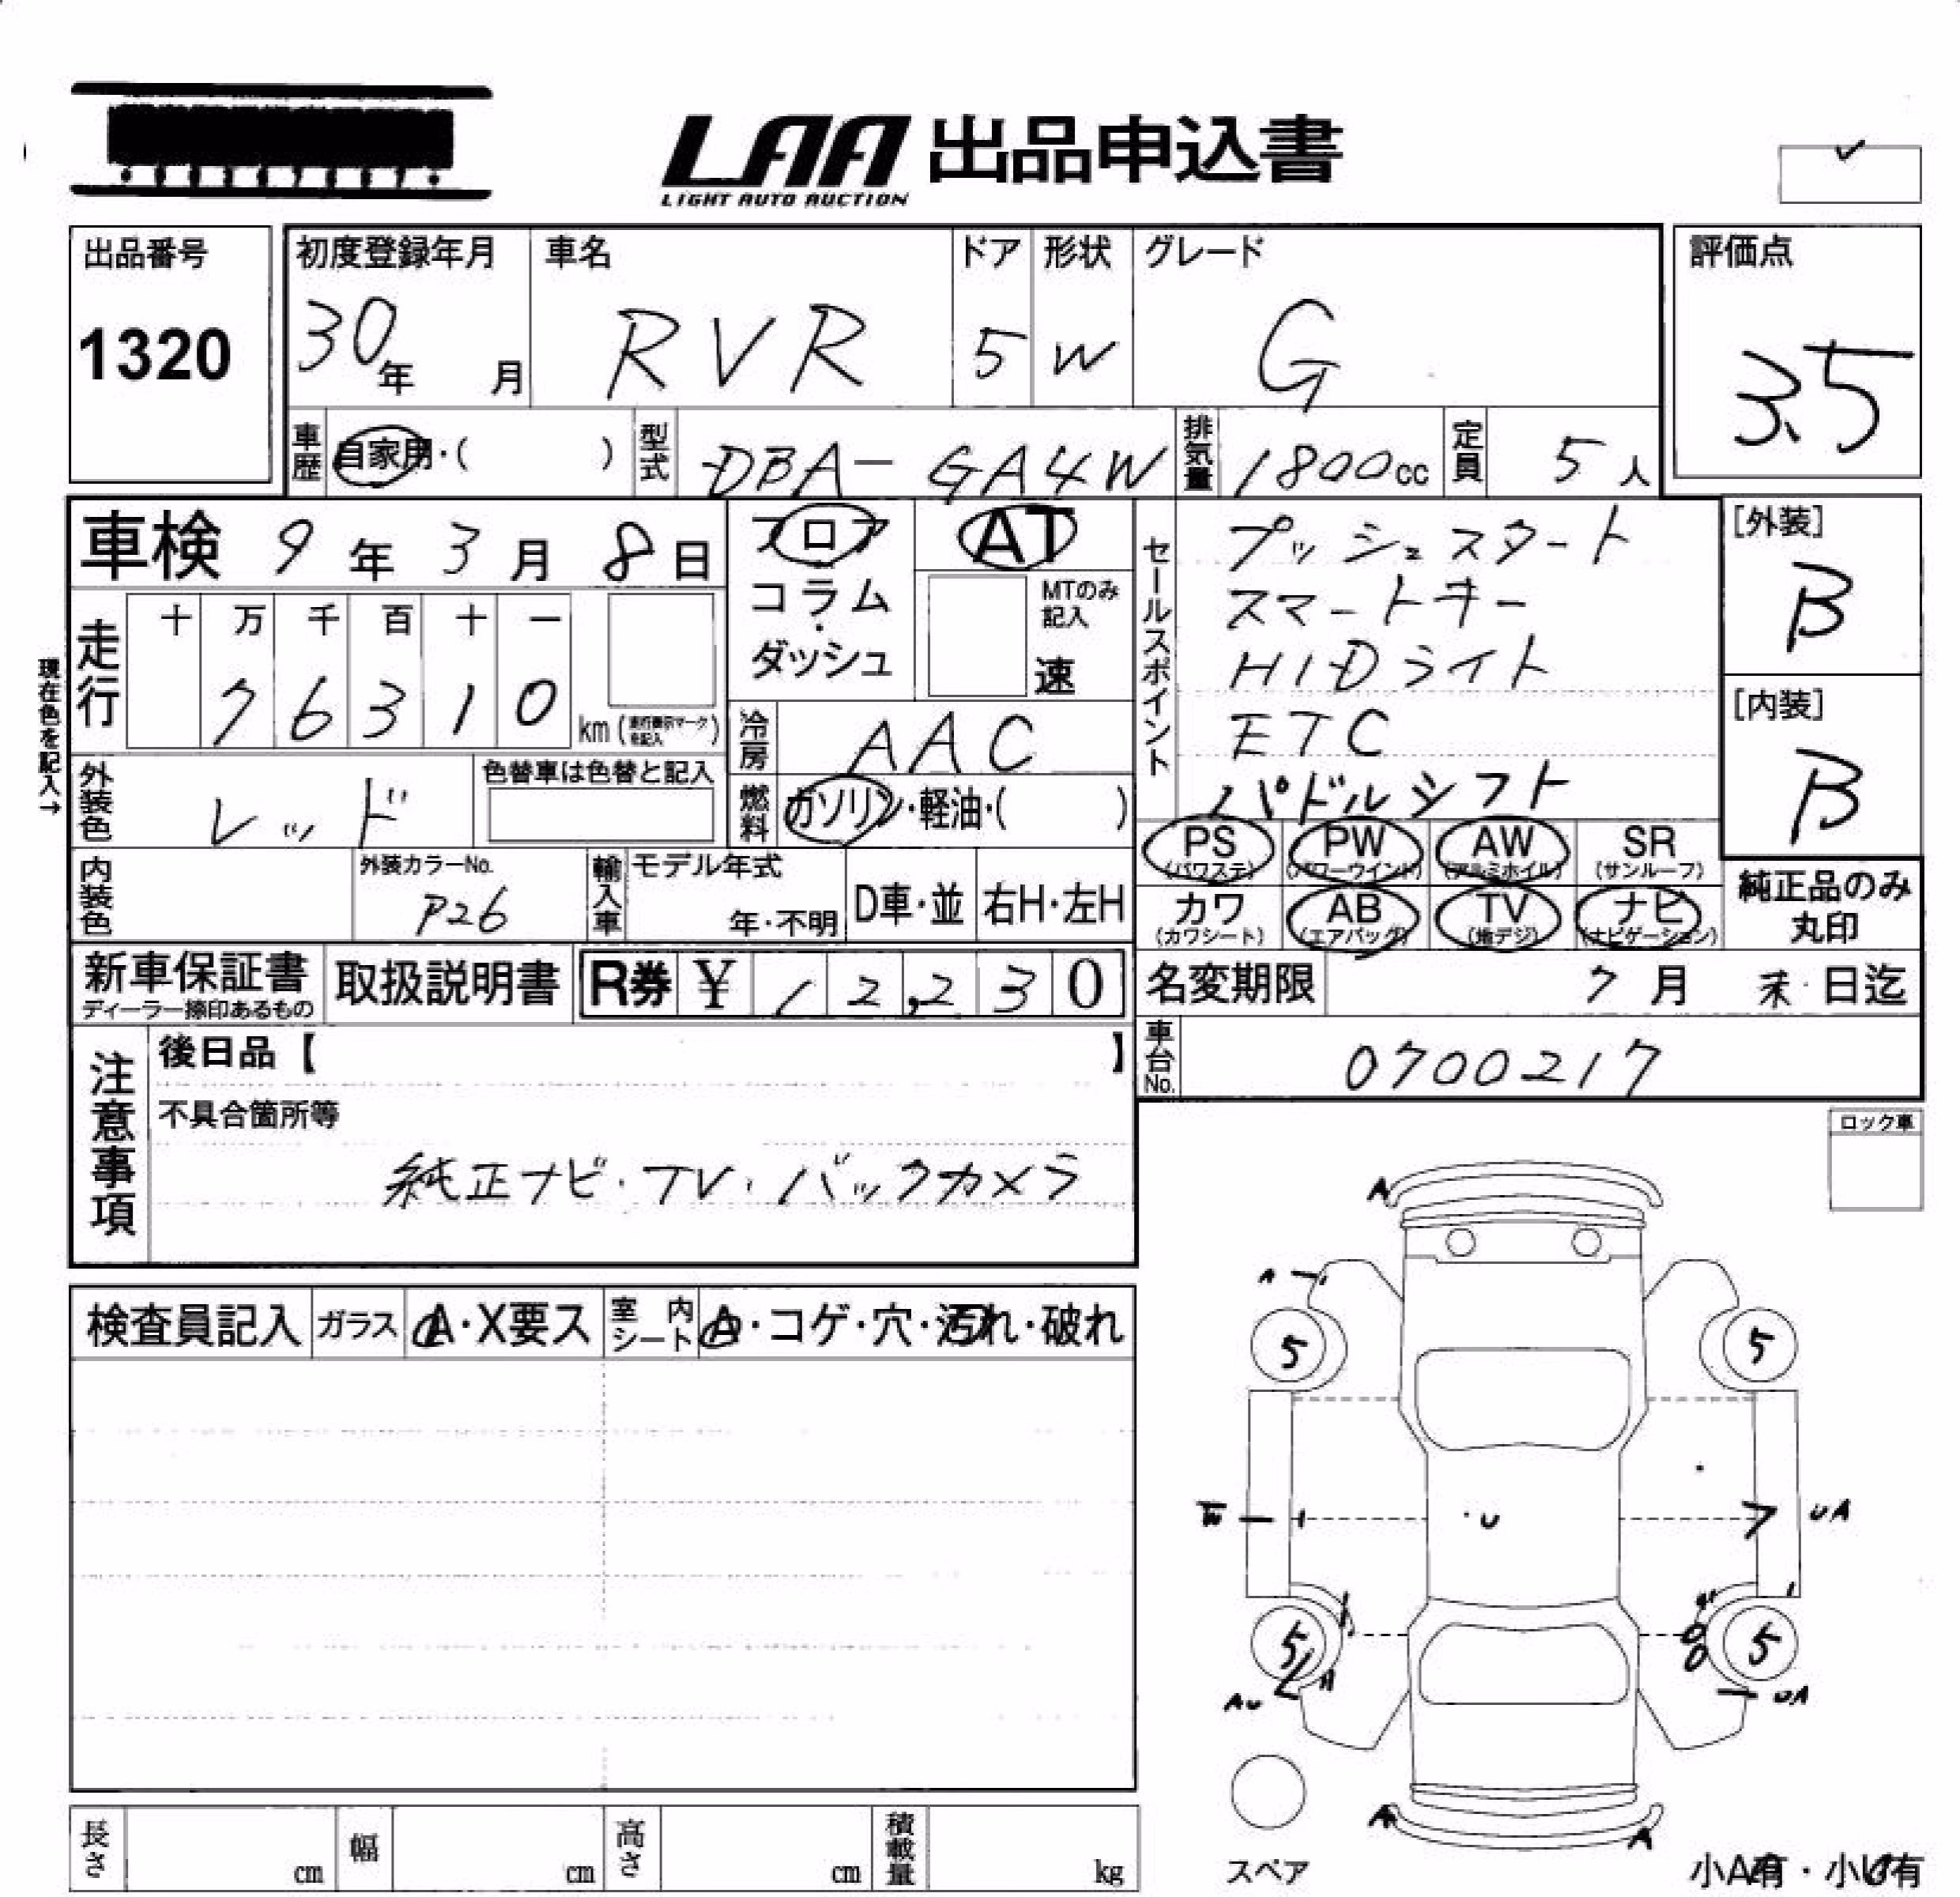 LAA 出品申込書
LIGHT AUTO AUCTION
出品番号
1320
初度登録年月
30年 月
車名
RVR
ドア
5
形状
W
グレード
G
評価点
3.5
車歴
自家用・( )
型式
DBA-GA4W
排気量
1800cc
定員
5人
車検 9年3月8日
フロア
コラム・
ダッシュ
AT
MTのみ
記入
速
セールスポイント
プッシュスタート
スマートキー
HIDライト
ETC
パドルシフト
[外装]
B
[内装]
B
現在色を記入→
走行
十 万 千 百 十 一
7 6 3 1 0
km
冷房
AAC
外装色
レッド
色替車は色替と記入
燃料
ガソリン・軽油・( )
PS PW AW SR
(パワステ) (パワーウインド) (アルミホイル) (サンルーフ)
カワ AB TV ナビ
(カワシート) (エアバッグ) (地デジ) (ナビゲーション)
純正品のみ
丸印
内装色
外装カラーNo.
P26
輸入車
モデル年式
年・不明
D車・並
右H・左H
新車保証書
ディーラー捺印あるもの
取扱説明書
R券 ¥ 12,230
名変期限 7月 末・日迄
車台No.
0700217
注意事項
後日品【 】
不具合箇所等
純正ナビ・TV・バックカメラ
ロック車
検査員記入
ガラス
A・X要ス
室内
シート
A・コゲ・穴・汚れ・破れ
A
A
5 5
U
UA
5 5
A
AU
UA
A
A
スペア
長さ
cm
幅
cm
高さ
cm
積載量
kg
小A有・小U有